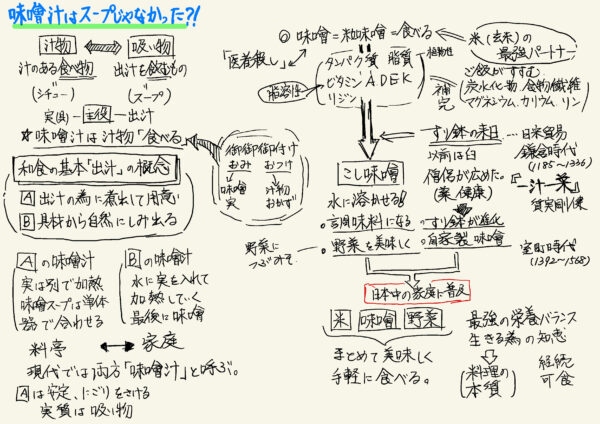 味噌汁はスープじゃなかった?!
汁物 ⟷ 吸い物
汁のある食べ物 出汁を飲むもの
(シチュー) (スープ)
実(具)ー主役ー出汁
★味噌汁は汁物「食べる」
和食の基本「出汁」の概念
A 出汁の為に煮出して用意
B 具材から自然にしみ出る
Aの味噌汁
実は別で加熱
味噌スープは単体
器で合わせる
Bの味噌汁
水に実を入れて
加熱していく
最後に味噌
料亭 ⟷ 家庭
現代では両方「味噌汁」と呼ぶ。
Aは安定、にごりをさける
実質は吸い物
御御御付け
おみ おつけ
味噌 汁物
実 おかず
◎味噌=和味噌=食べる
「医者殺し」
タンパク質 脂質
植物性
ビタミン A D E K
リジン
脂溶性
補完
米(玄米)の
最強パートナー
ご飯がすすむ
炭水化物、食物繊維
マグネシウム、カリウム、リン
こし味噌
水に溶かせる!!
○調味料になる
○野菜を美味しく
野菜に
つぶみそ
すり鉢の来日…日宋貿易
鎌倉時代
(1185〜1336)
以前は臼
僧侶が広めた。
(薬、健康)
『一汁一菜』
質実剛健
○すり鉢が進化
○自家製味噌
室町時代
(1392〜1568)
日本中の家庭に普及
米 味噌 野菜
まとめて美味しく
手軽に食べる。
最強の栄養バランス
生きる為の知恵
料理の
本質
継続
可食